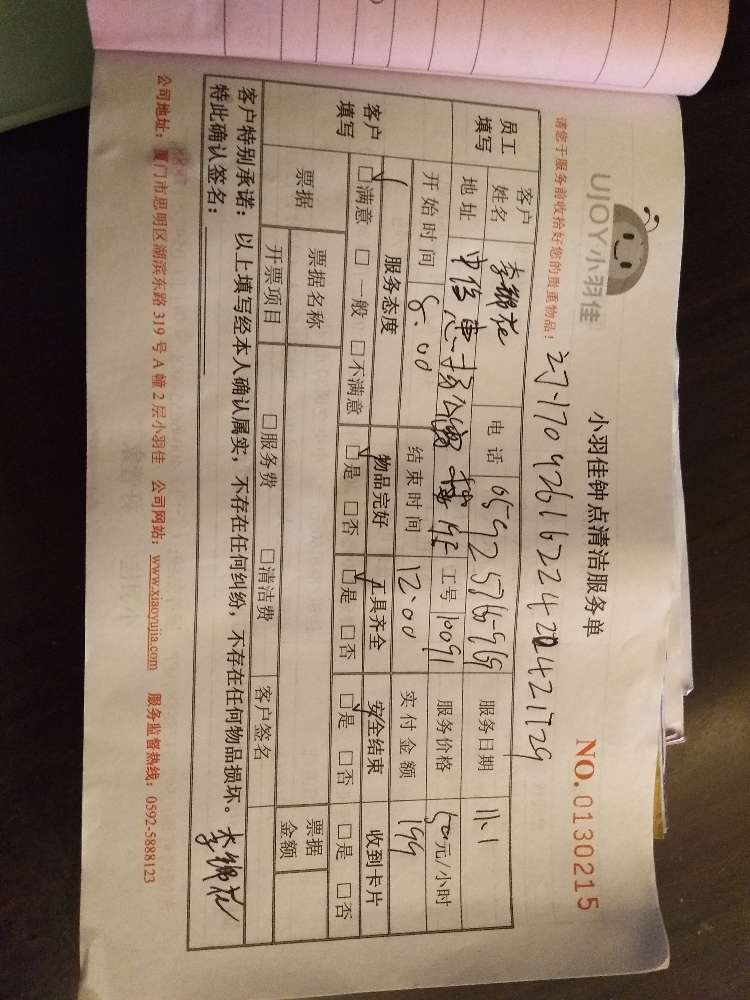 UJOY小羽佳
小羽佳钟点清洁服务单
NO.0130215
请您于服务前收拾好您的贵重物品!
员工填写 客户姓名 李锦花 电话 服务日期 11.1
地址 工号 10091 服务价格 50元/小时
开始时间 8:00 结束时间 12:00 实付金额 199
客户填写 服务态度 物品完好 工具齐全 安全结束 收到卡片
☑满意 □一般 □不满意 ☑是 □否 ☑是 □否 ☑是 □否 □是 □否
票据 票据名称 票据金额
开票项目 □服务费 □清洁费 客户签名
客户特别承诺:以上填写经本人确认属实,不存在任何纠纷,不存在任何物品损坏。
特此确认签名: 李锦花
公司地址:厦门市思明区湖滨东路319号A幢2层小羽佳 公司网站:www.xiaoyujia.com 服务监督热线:0592-5888123